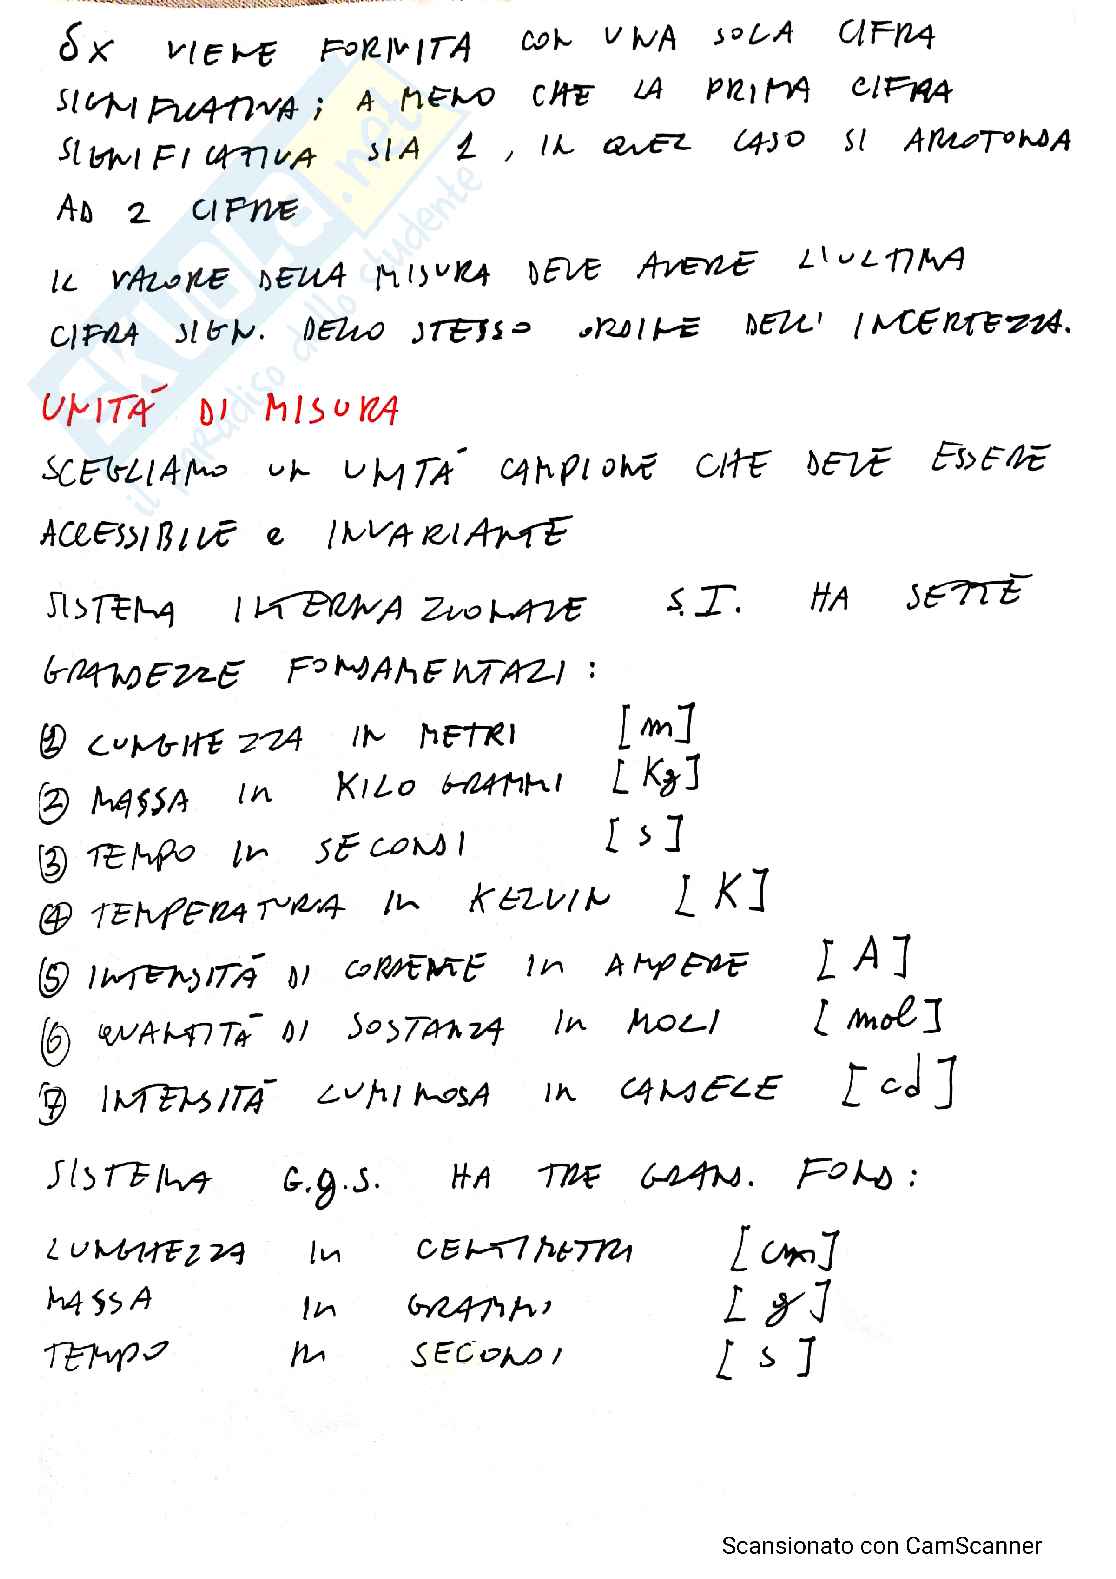 δx VIENE FORNITA CON UNA SOLA CIFRA
SIGNIFICATIVA; A MENO CHE LA PRIMA CIFRA
SIGNIFICATIVA SIA 1, IN QUEL CASO SI ARROTONDA
AD 2 CIFRE
IL VALORE DELLA MISURA DEVE AVERE L'ULTIMA
CIFRA SIGN. DELLO STESSO ORDINE DELL'INCERTEZZA.
UNITÀ DI MISURA
SCEGLIAMO UN UNITÀ CAMPIONE CHE DEVE ESSERE
ACCESSIBILE e INVARIANTE
SISTEMA INTERNAZIONALE S.I. HA SETTE
GRANDEZZE FONDAMENTALI:
① LUNGHEZZA IN METRI [m]
② MASSA in KILOGRAMMI [Kg]
③ TEMPO IN SECONDI [s]
④ TEMPERATURA in KELVIN [K]
⑤ INTENSITÀ DI CORRENTE in AMPERE [A]
⑥ QUANTITÀ DI SOSTANZA in MOLI [mol]
⑦ INTENSITÀ LUMINOSA in CANDELE [cd]
SISTEMA C.g.s. HA TRE GRAN. FOND:
LUNGHEZZA in CENTIMETRI [cm]
MASSA in GRAMMI [g]
TEMPO in SECONDI [s]
SKUOLA.net
il paradiso dello studente
Scansionato con CamScanner